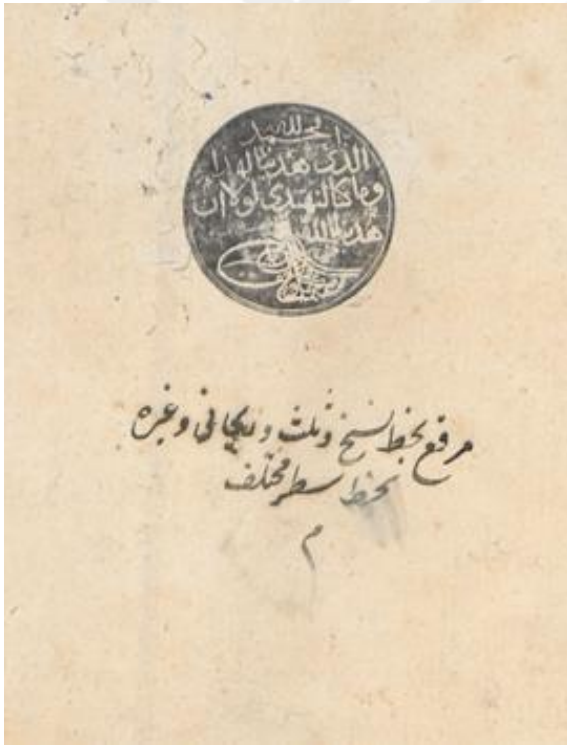 الحمد لله
الذي هدينا لهذا
وما كنا لنهتدى لولا ان
هدينا الله
مرقع بخط نسخ وثلث وريحانى وغيره
بخط سطر مختلف
م